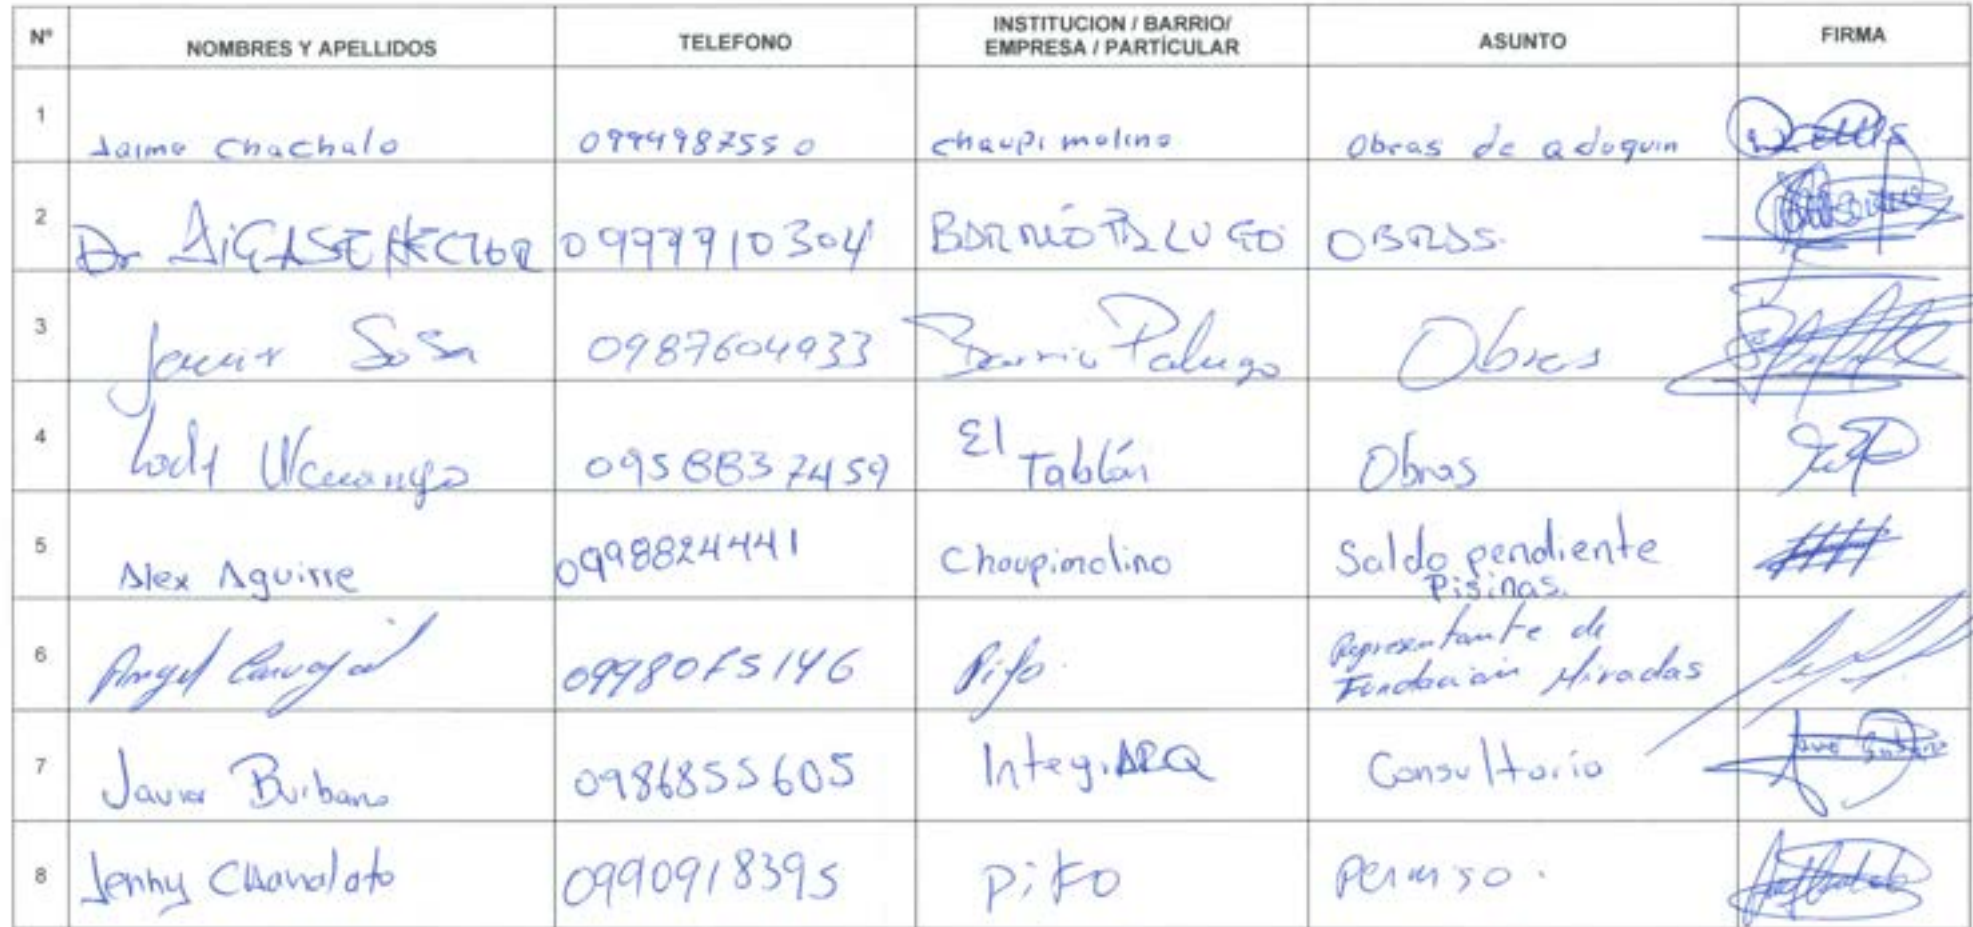 Nº NOMBRES Y APELLIDOS TELEFONO INSTITUCION / BARRIO/ EMPRESA / PARTÍCULAR ASUNTO FIRMA
1 Jaime Chachalo 09994987550 chaupi molino Obras de adoquin
2 Dr HECTOR 0999910304 BARRIO PALUGO OBRAS.
3 Javier Sosa 0987604933 Barrio Palugo Obras
4 0958837459 El Tablón Obras
5 Alex Aguirre 0998824441 Chaupimolino Saldo pendiente
Pisinas.
6 Angel Carvajal Pifo. Representante de
Fundacion Miradas
7 Javier Burbano 0986855605 IntegrARQ Consultorio
8 Jenny 0990918395 Pifo Permiso.